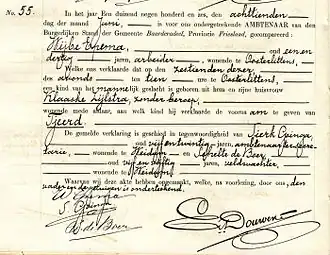 No. 55.
In het jaar Een duizend negen honderd en zes, den achttienden
dag der maand Juni, is voor ons ondergeteekende AMBTENAAR van den
Burgerlijken Stand der Gemeente Baarderadeel, Provincie Friesland, gecompareerd:
Wijbe Epema, oud een en
dertig jaren, arbeider, wonende te Oosterlittens,
Welke ons verklaarde dat op den zestienden dezer,
des avonds te tien ure te Oosterlittens
een kind van het mannelijk geslacht is geboren uit hem en zijne huisvrouw
Klaaske Zijlstra, zonder beroep,
wonende mede aldaar, aan welk kind hij verklaarde de voornaam te geven van
Tjeerd.
De gemelde verklaring is geschied in tegenwoordigheid van Sjerk Epinga,
oud vijf en twintig jaren, ambtenaar ter secre-
tarie, wonende te Weidum en Sjoelte de Boer,
oud vijf en vijftig jaren, veldwachter,
wonende te Weidum.
Waarvan wij deze akte hebben opgemaakt, welke, na voorlezing, door ons, den
vader en de getuigen is onderteekend.
W Epema
S. Epinga
S de Boer
Douwena